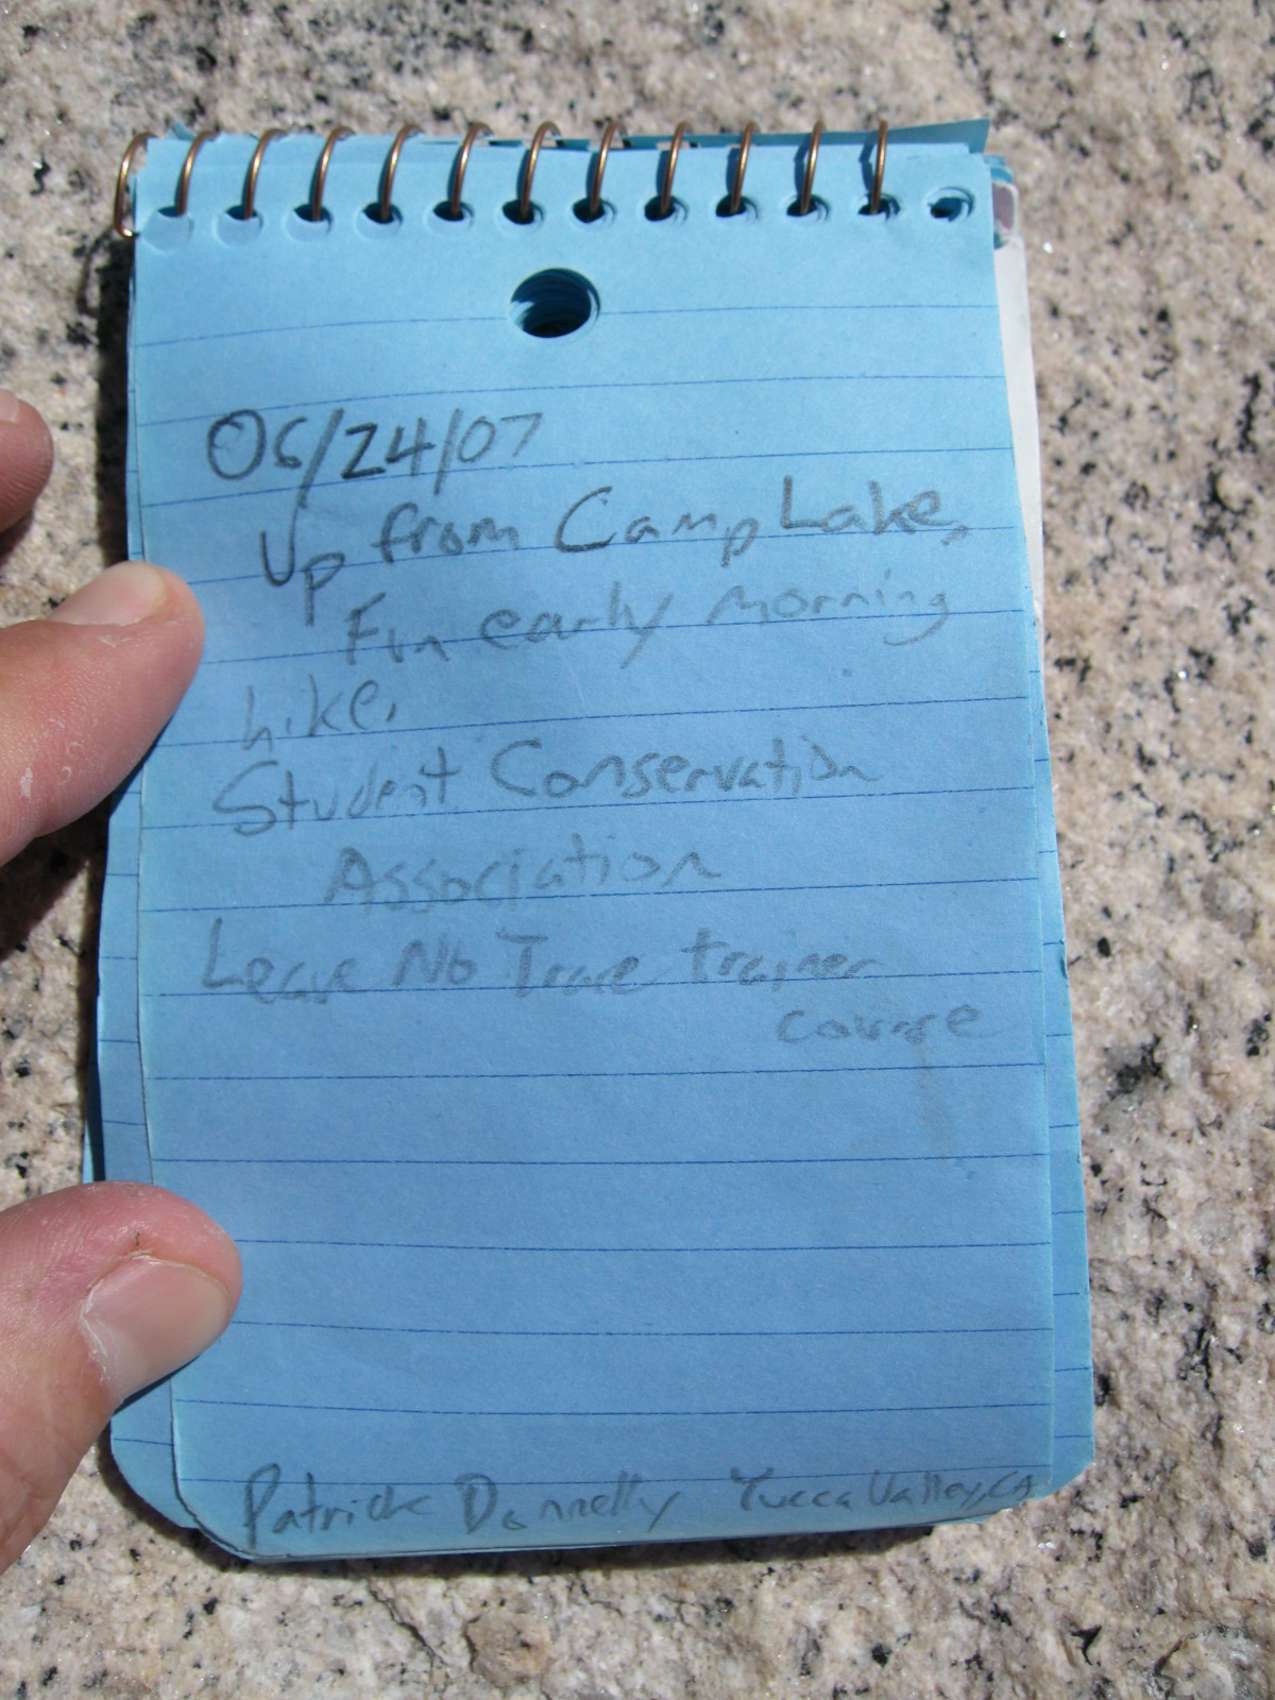 06/24/07
Up from Camp Lake,
Fun early morning
hike.
Student Conservation
Association
Leave No Trace trainer
course
Patrick Donnelly Yucca Valley, CA